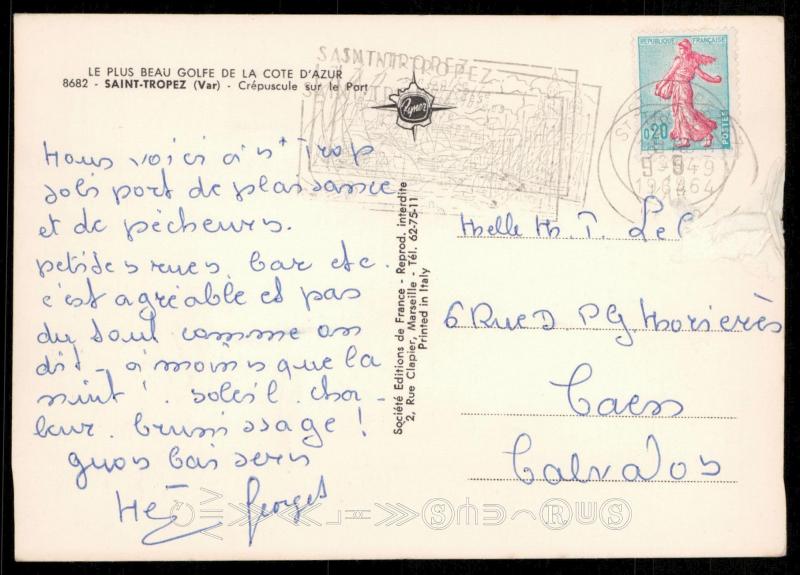 LE PLUS BEAU GOLFE DE LA COTE D'AZUR
8682 - SAINT-TROPEZ (Var) - Crépuscule sur le Port
SAINT TROPEZ
REPUBLIQUE FRANÇAISE
0,20
POSTES
1964
Nous voici à St Trop
jolis port de plaisance
et de pécheurs.
petites rues, bar etc.
c'est agréable et pas
du tout comme on
dit - à moins que la
nuit ! soleil. cha-
leur. brunissage !
gros baisers
Georges
Société Editions de France - Reprod. interdite
2, Rue Clapier, Marseille - Tél. 62-75-11
Printed in Italy
Melle M. T. Lel
6 Rue D
Caen
Calvados